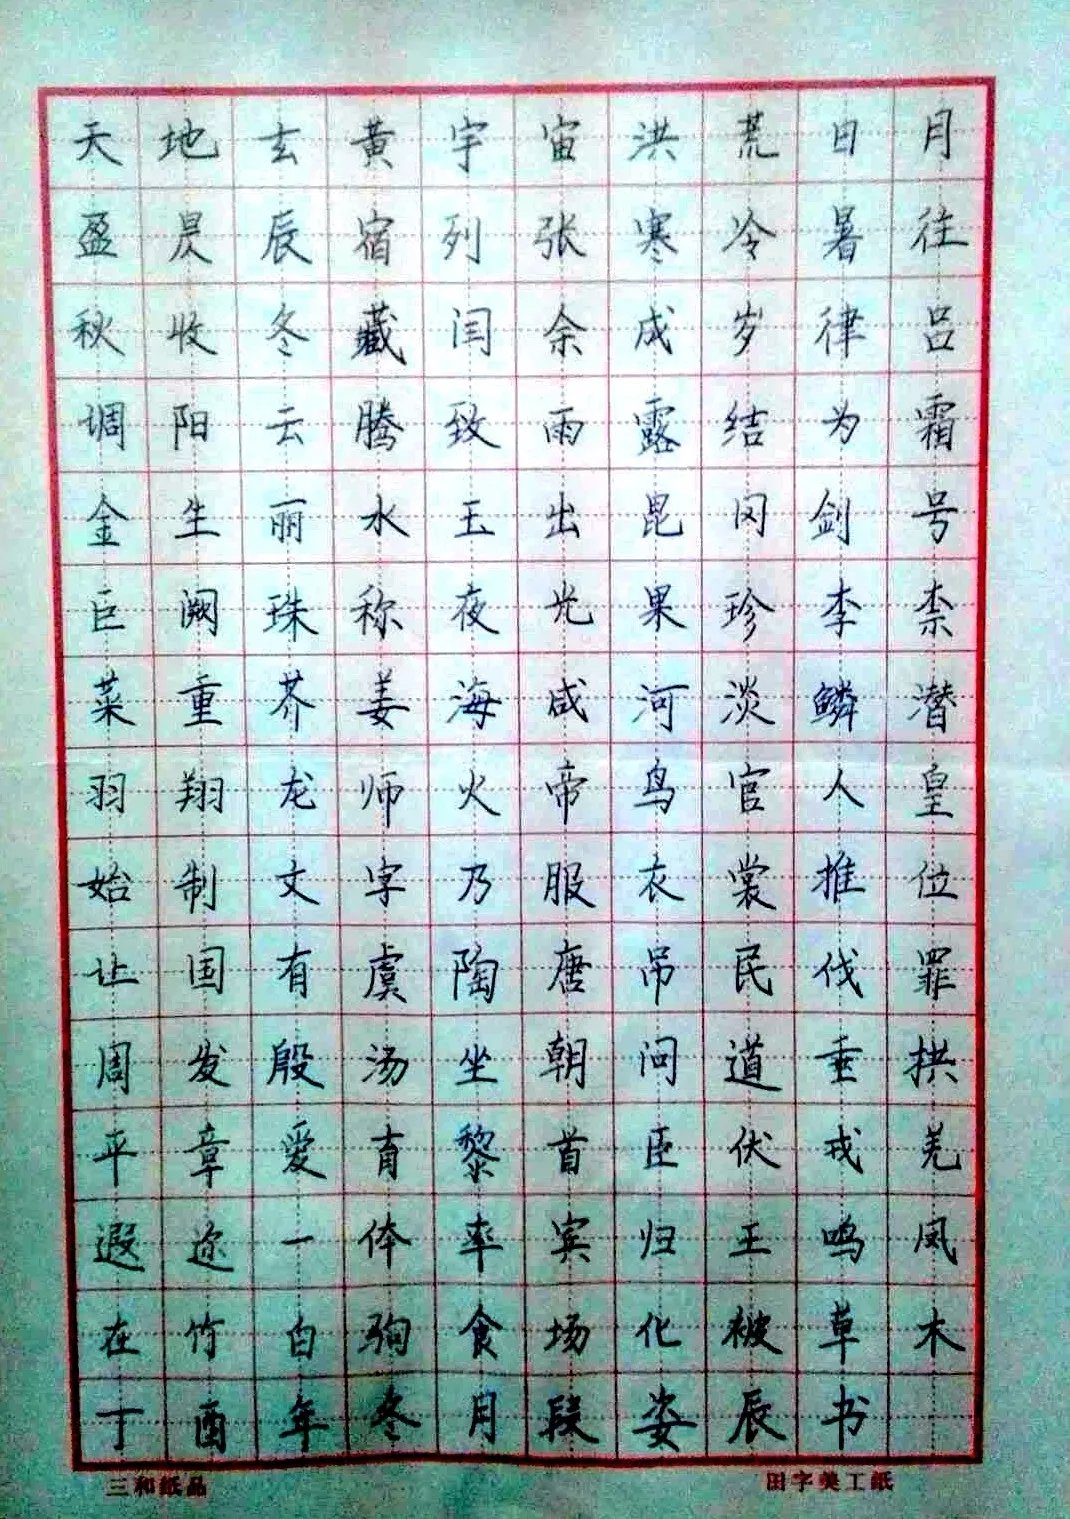 天地玄黄宇宙洪荒日月
盈昃辰宿列张寒冷暑往
秋收冬藏闰余成岁律吕
调阳云腾致雨露结为霜
金生丽水玉出昆冈剑号
巨阙珠称夜光果珍李柰
菜重芥姜海咸河淡鳞潜
羽翔龙师火帝鸟官人皇
始制文字乃服衣裳推位
让国有虞陶唐吊民伐罪
周发殷汤坐朝问道垂拱
平章爱育黎首臣伏戎羌
遐迩一体率宾归王鸣凤
在竹白驹食场化被草木
丁酉年冬月段姿辰书
三和纸品 田字美工紙